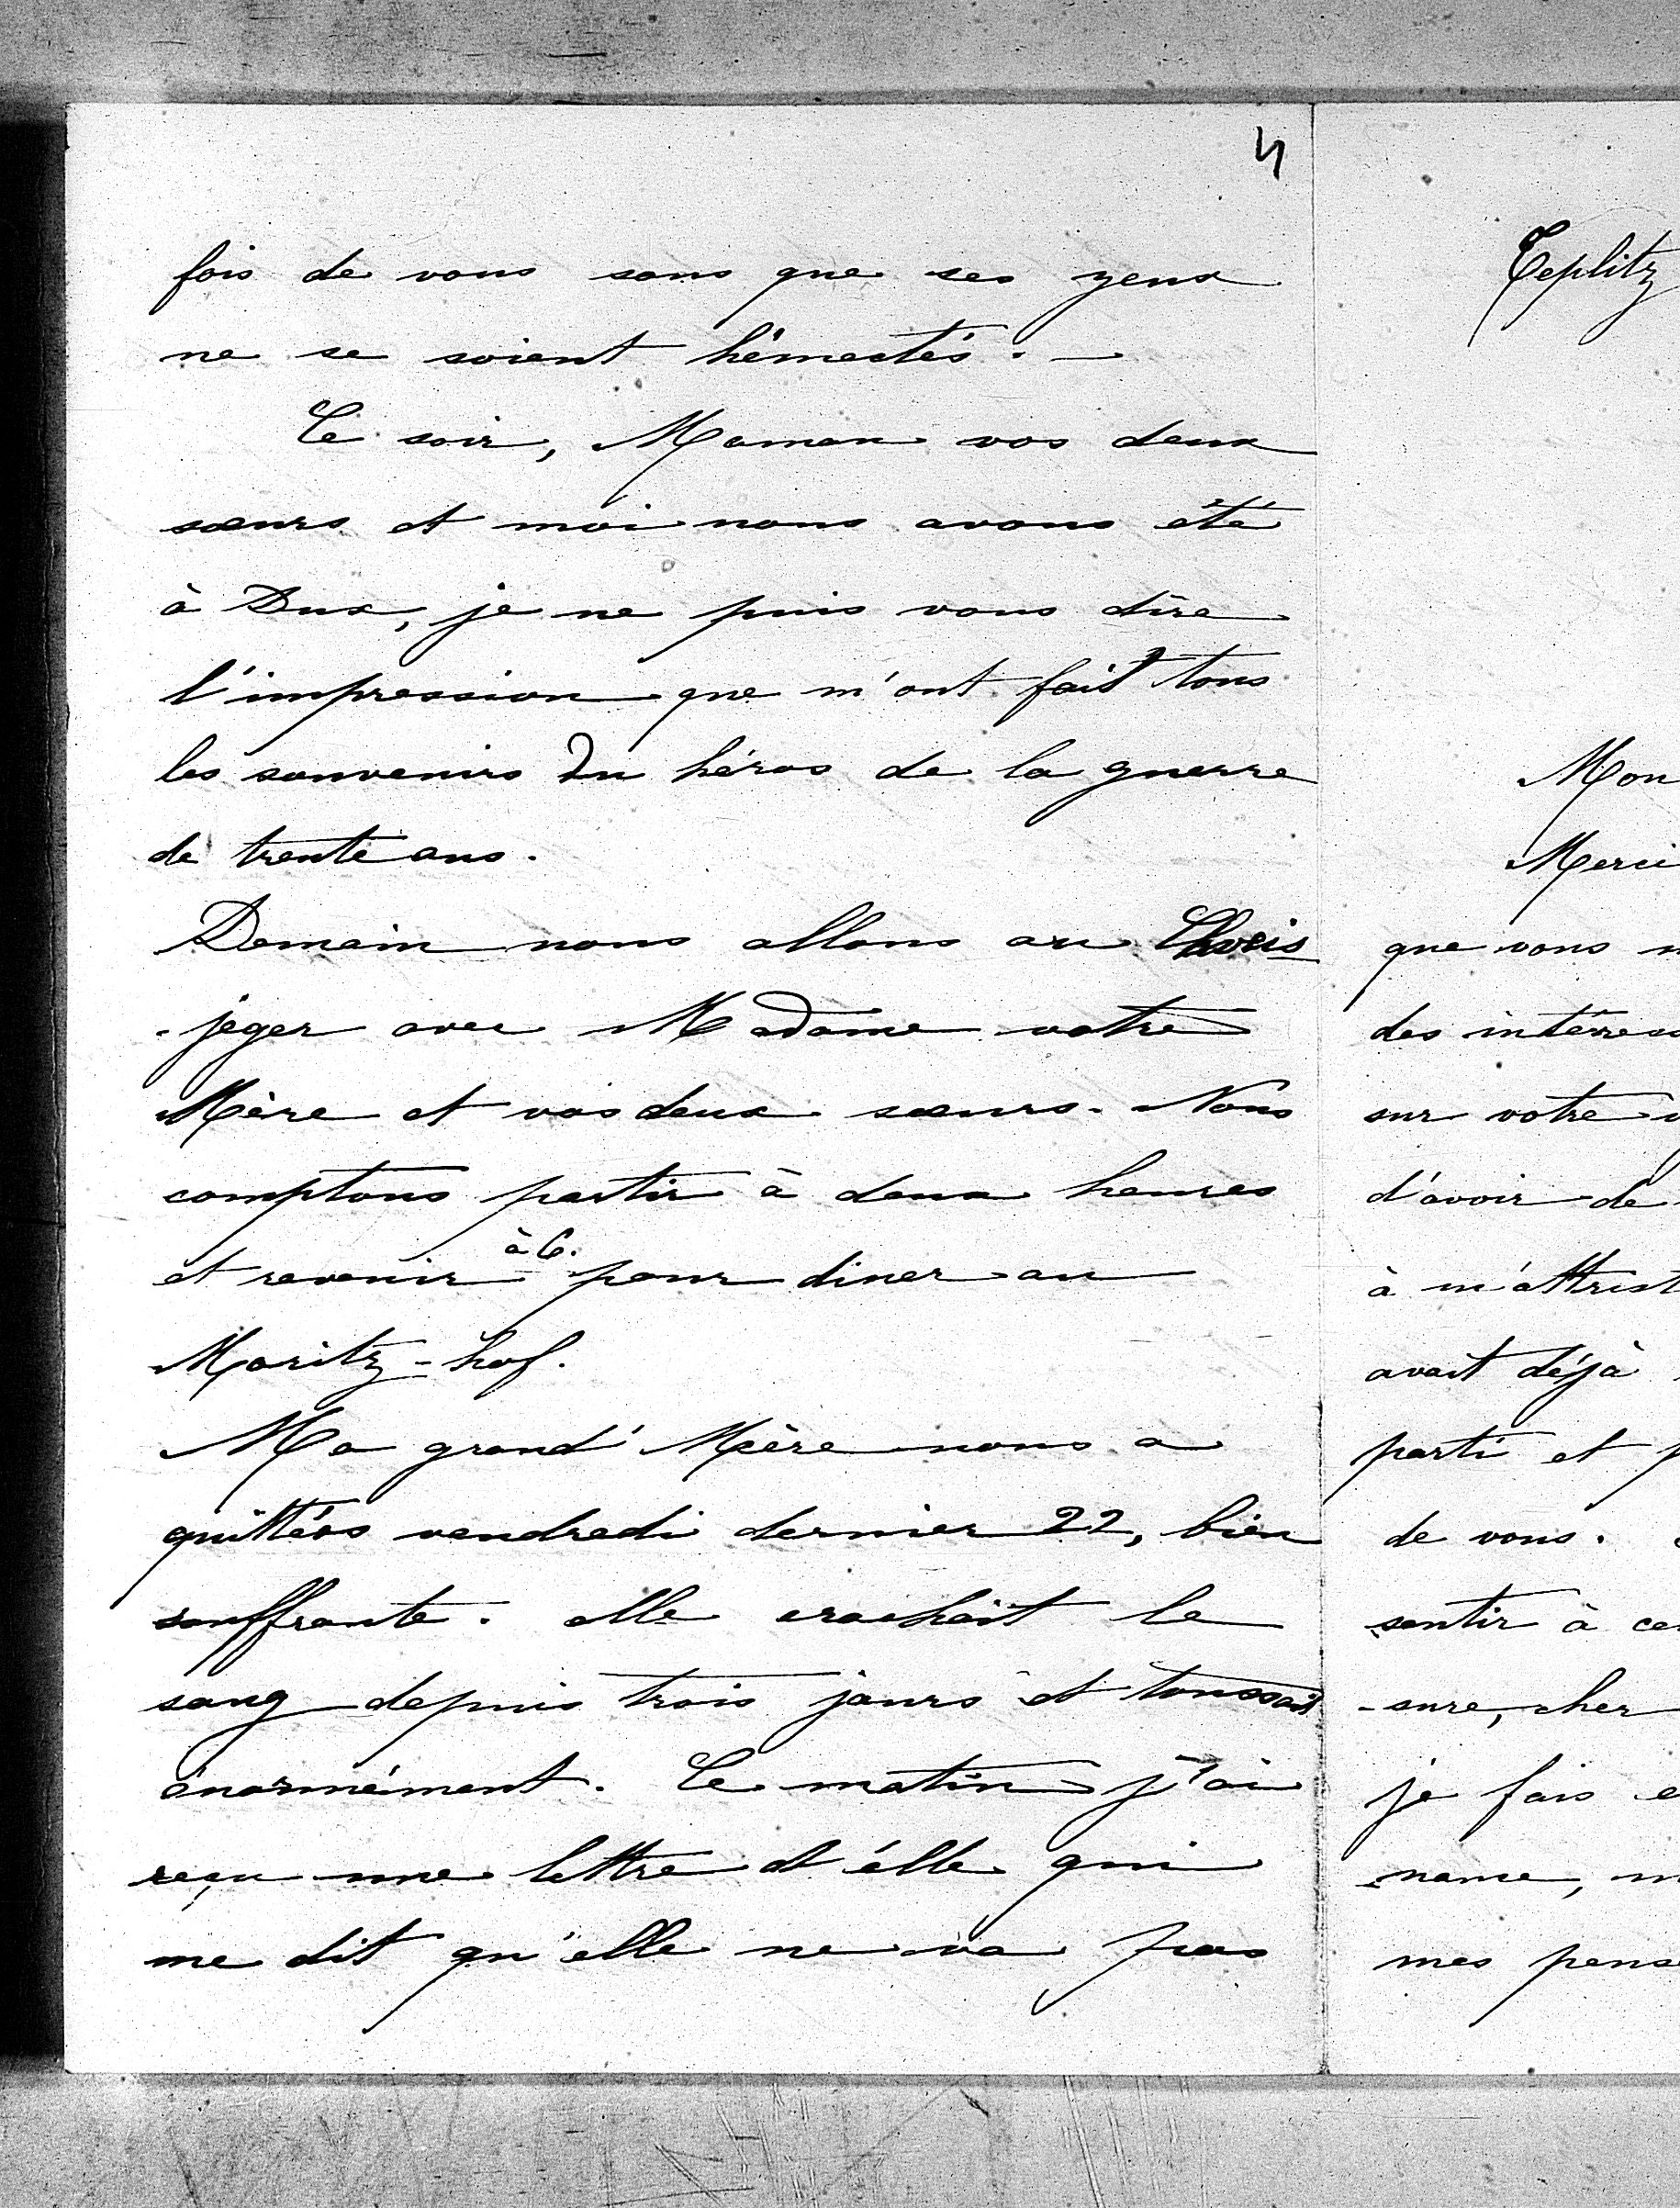 4
fois de vous sans que ses yeux
ne se soient hémectés. —
Ce soir, Maman vos deux
sœurs et moi nous avons été
à Dux, je ne puis vous dire
l'impression que m'ont fait tous
les souvenirs du héros de la guerre
de trente ans.
Demain nous allons au
-jeger avec Madame votre
Mère et vos deux sœurs. Nous
comptons partir à deux heures
et revenir à 6. pour diner au
Moritz-hof.
Ma grand' Mère nous a
quittées vendredi dernier 22, bien
souffrante. elle crachait le
sang depuis trois jours et toussait
énormément. Ce matin j'ai
reçu une lettre d'elle qui
me dit qu'elle ne va pas
Teplitz
Mon
Merci
que vous
des intéress
sur votre
d'avoir de
à m'attrist
avait déjà
parti et
de vous.
sentir à ce
-sure, cher
je fais
-nance,
mes pens